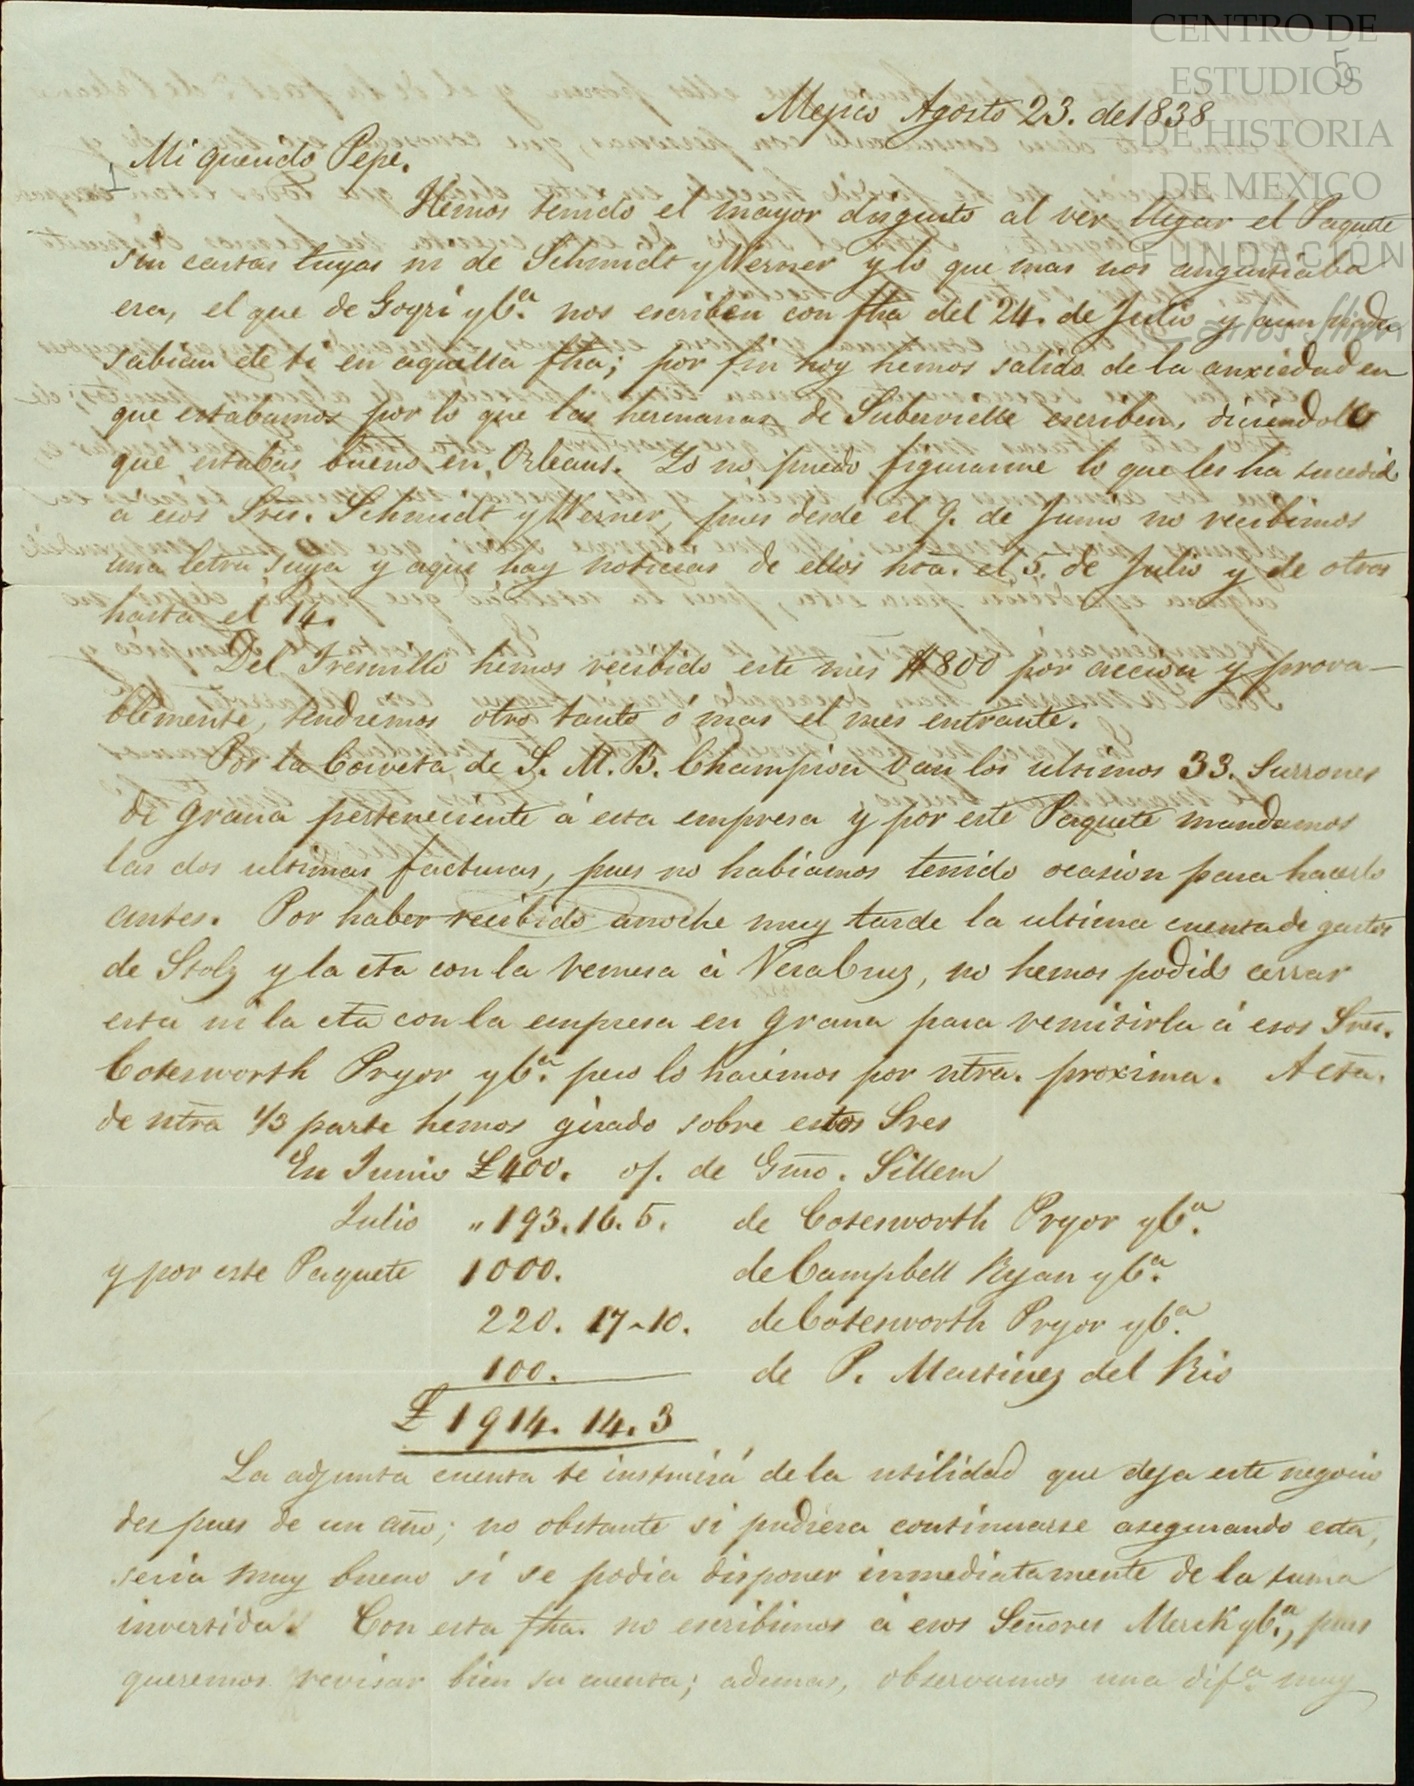 CENTRO DE
ESTUDIOS
DE HISTORIA
DE MEXICO
FUNDACIÓN
5
Mejico Agosto 23. de 1838
1 Mi querido Pepe.
Hemos tenido el mayor disgusto al ver llegar el Paquete
sin cartas tuyas ni de Schmidt y Werner y lo que mas nos angustiaba
era, el que de Gogri y Cª. nos escriben con fha del 24. de Julio y aun nada
sabian de ti en aquella fha; por fin hoy hemos salido de la anxiedad en
que estabamos por lo que las hermanas de Subervielle escriben, diciendole
que estabas bueno en Orleans. Yo no puedo figurarme lo que les ha sucedido
a esos Sres. Schmidt y Werner, pues desde el 9. de Junio no recibimos
una letra suya y aqui hay noticias de ellos hta. el 5. de Julio y de otros
hasta el 14.
Del Fresnillo hemos recibido este mes $800 por accion y prova-
blemente, tendremos otro tanto ó mas el mes entrante.
Por la Corveta de S. M. B. Champion van los ultimos 33. Surrones
de grana perteneciente á esta empresa y por este Paquete mandamos
las dos ultimas facturas, pues no habiamos tenido ocasion para hacerlo
antes. Por haber recibido anoche muy tarde la ultima cuenta de gastos
de Stolz y la cta con la remesa á VeraCruz, no hemos podido cerrar
esta ni la cta con la empresa en grana para remitirla á esos Sres.
Cotesworth Pryor y Cª. pero lo haremos por ntra. proxima. A cta.
de ntra 1/3 parte hemos girado sobre estos Sres
En Junio £400. of. de Gmo. Sillem
Julio " 193. 16. 5. de Cotesworth Pryor y Cª.
y por este Paquete 1000. de Campbell Ryan y Cª.
220. 17-10. de Cotesworth Pryor y Cª.
100. de P. Martinez del Rio
£ 1914. 14. 3
La adjunta cuenta te instruirá de la utilidad que deja este negocio
despues de un año; no obstante si pudiera continuarse asegurando esta,
seria muy bueno si se podia disponer inmediatamente de la suma
invertida. Con esta fha. no escribimos á esos Señores Merck y Cª., pues
queremos revisar bien su cuenta; ademas, observamos una difª. muy